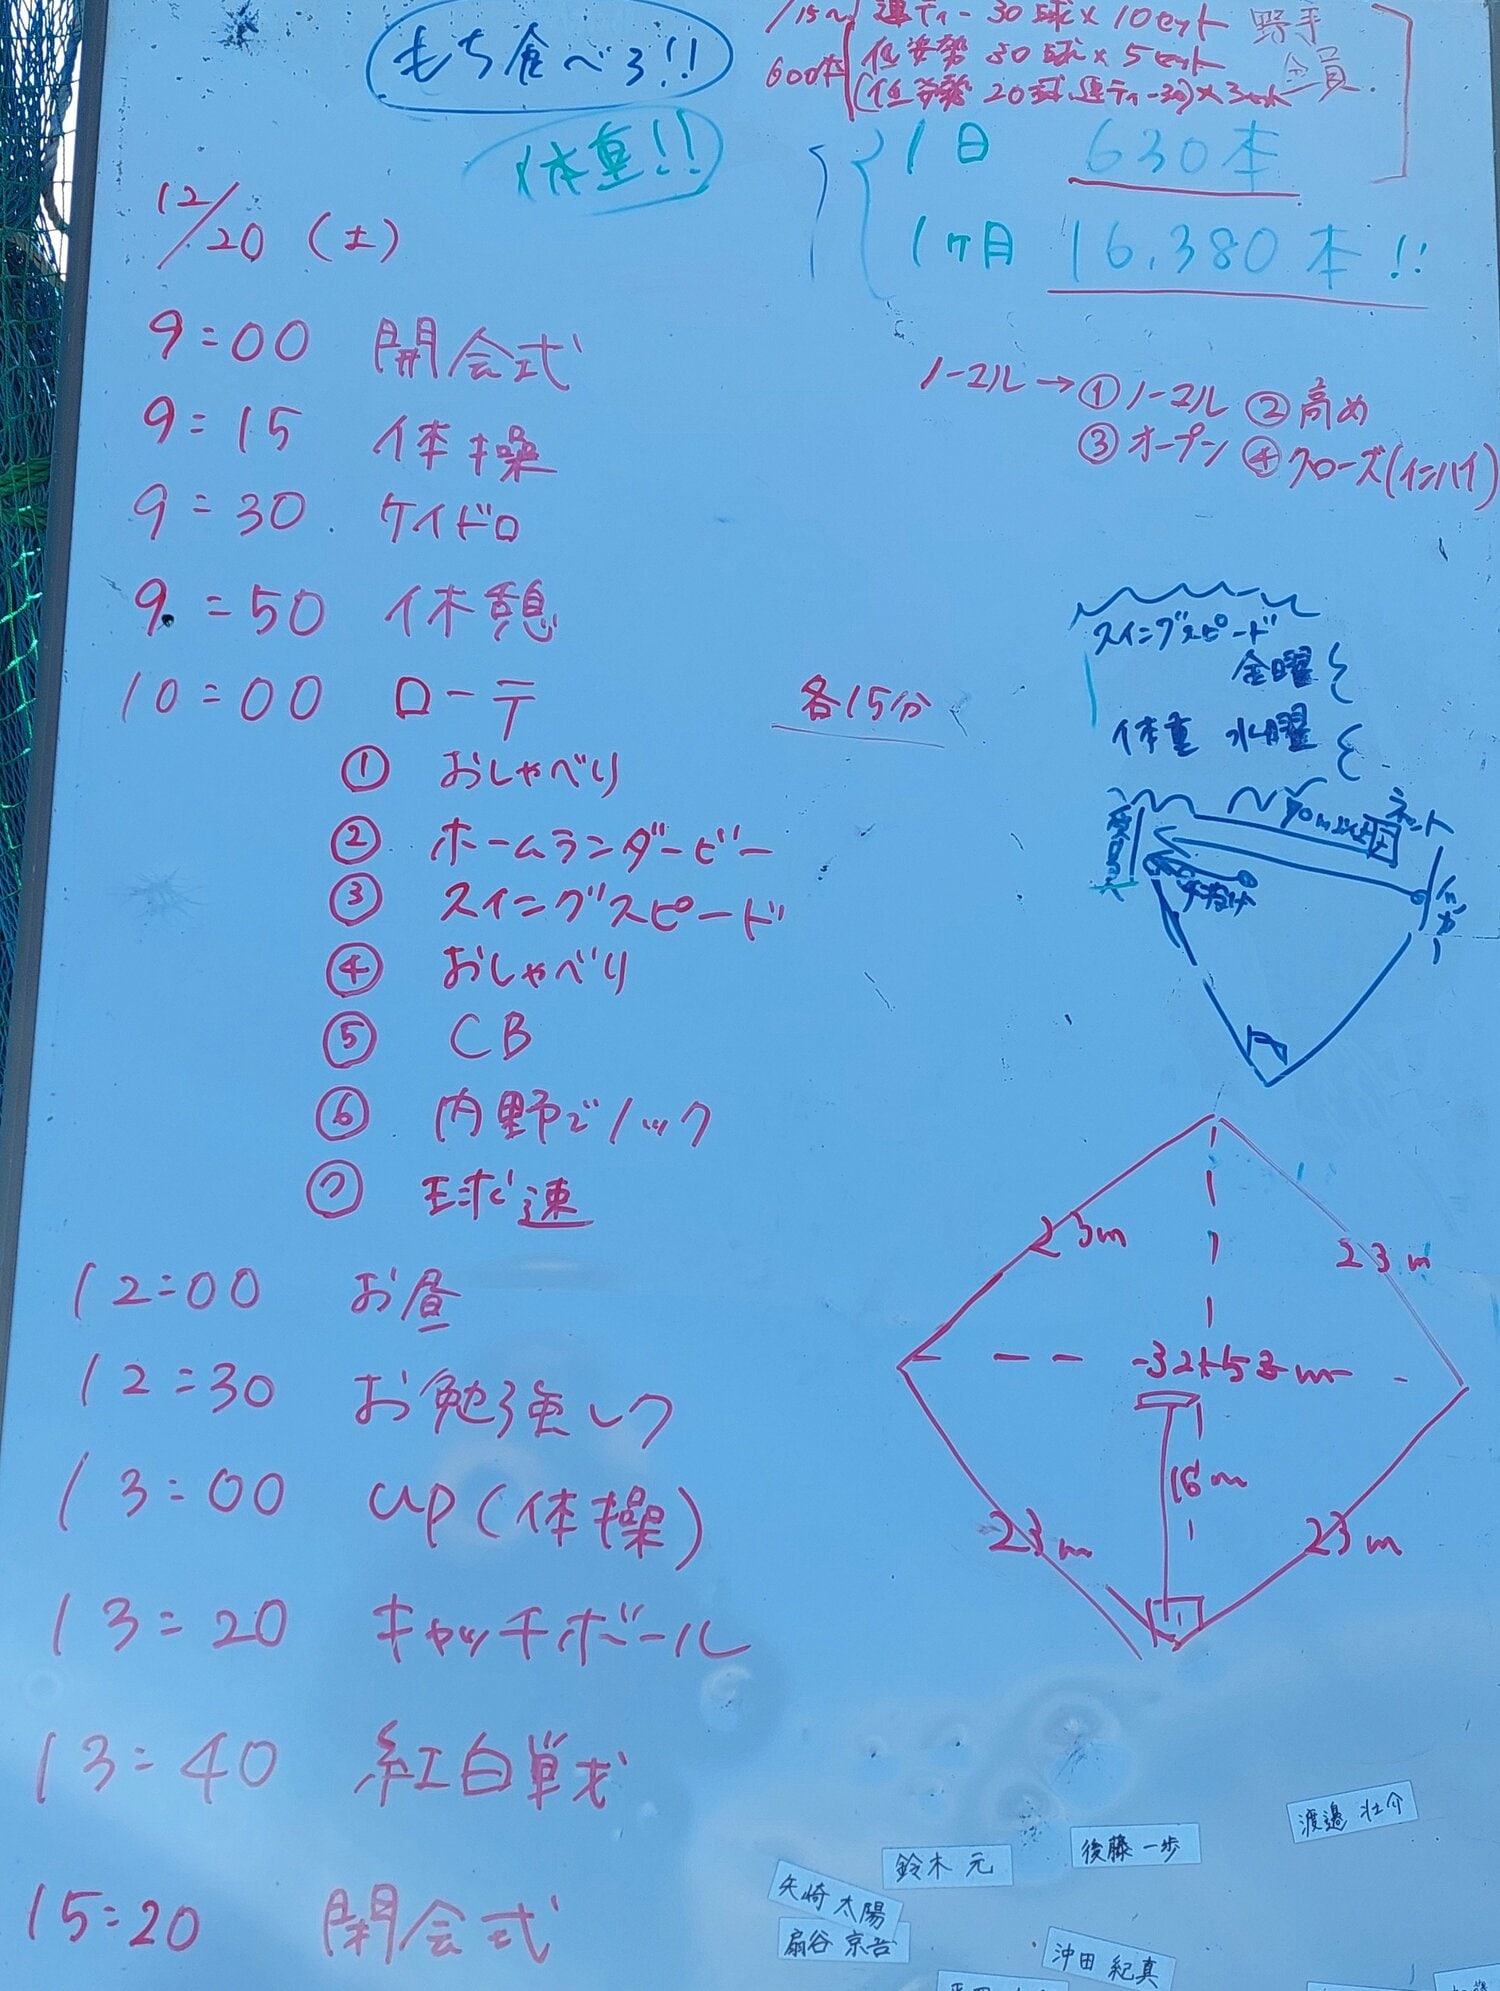 もち食べろ!!
体重!!
/15〜 連ティー 30球×10セット 野手
600本 低姿勢 30球×5セット 全員
(低姿勢 20球 連ティー30)×3セット
1日 630本
1ヶ月 16,380本!!
12/20(土)
9:00 開会式
9:15 体操
9:30 ケイドロ
9:50 休憩
10:00 ローテ 各15分
① おしゃべり
② ホームランダービー
③ スイングスピード
④ おしゃべり
⑤ CB
⑥ 内野でノック
⑦ 球速
12:00 お昼
12:30 お勉強しフ
13:00 up(体操)
13:20 キャッチボール
13:40 紅白戦
15:20 閉会式
ノーマル→①ノーマル ②高め
③オープン ④クローズ(インハイ)
スイングスピード
金曜
体重 水曜
ネット
手投げ
23m
23m
16m
23m
23m
渡邉 壮介
後藤 一歩
鈴木 元
矢崎 太陽
扇谷 京吾
沖田 紀真